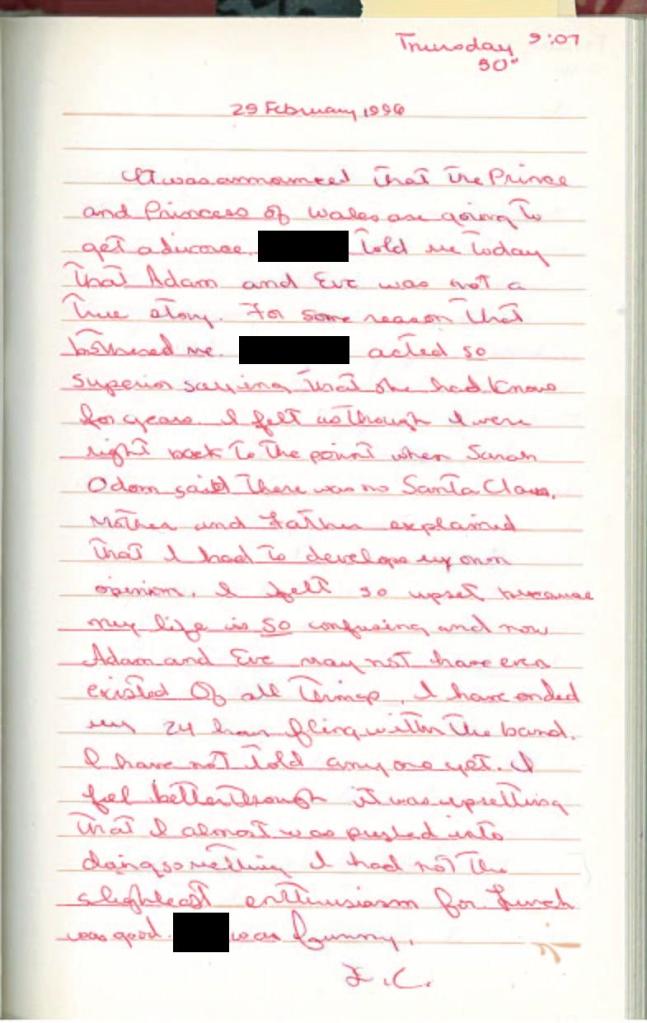 Thursday 9:07
30"
29 February 1996
It was announced that the Prince
and Princess of Wales are going to
get a divorce. told me today
that Adam and Eve was not a
true story. For some reason that
bothered me. acted so
superior saying that she had know
for years. I felt as though I were
right back to the point when Sarah
Odom said there was no Santa Claus.
Mother and Father explained
that I had to develope my own
opinion. I felt so upset because
my life is so confusing and now
Adam and Eve may not have even
existed of all things. I have ended
my 24 hour fling with the band.
I have not told any one yet. I
feel better though it was upsetting
that I almost was pushed into
doing something I had not the
slightest enthusiasm for. Lunch
was good. was funny.